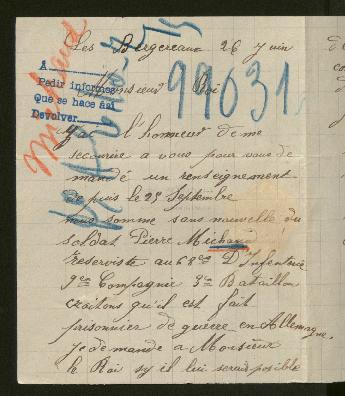 Les Bergereaux 26 Juin
Monsieur Roi
99031
Michaud
A
Pedir informes
Que se hace así
Devolver
J'ai l'honneur de me
secourire a vous pour vous de
mandé un renseignement
depuis le 25 Septembre
nous somme sans nouvelle du
soldat Pierre Michaud
reserviste au 68me D'Infanterie
9me Compagnie 3me Bataillon
croitons qu'il est fait
prisonnier de guerre en Allemagne,
je demande a Monsieur
le Roi sy il lui serais posible